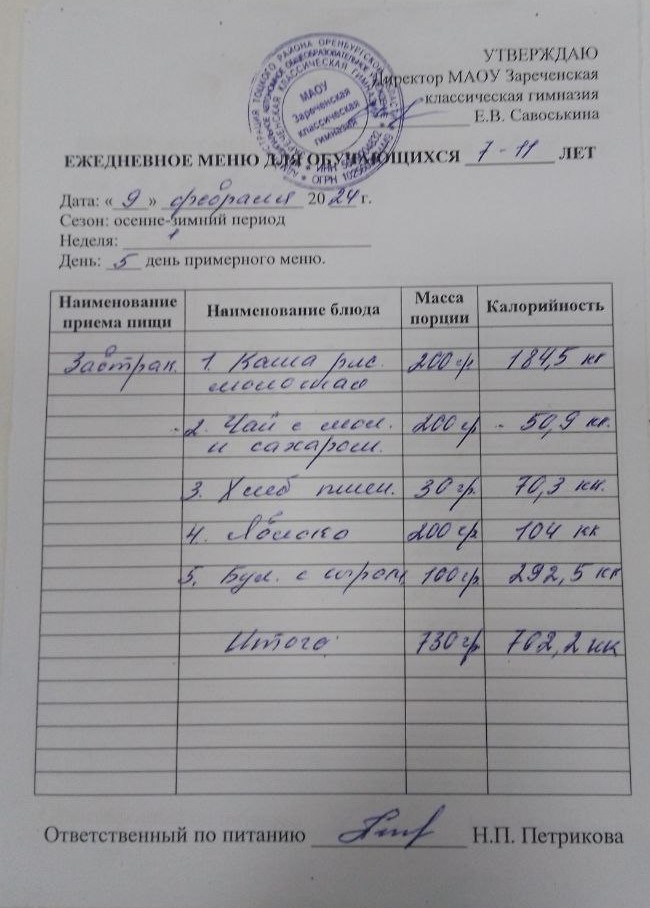 УТВЕРЖДАЮ
Директор МАОУ Зареченская
классическая гимназия
Е.В. Савоськина
МАОУ
Зареченская
классическая
гимназия
ЕЖЕДНЕВНОЕ МЕНЮ ДЛЯ ОБУЧАЮЩИХСЯ 7-11 ЛЕТ
Дата: «9» февраля 2024 г.
Сезон: осенне-зимний период
Неделя: 1
День: 5 день примерного меню.
Наименование приема пищи Наименование блюда Масса порции Калорийность
Завтрак. 1. Каша рис. 200 гр 184,5 кк
молочная
2. Чай с мол. 200 гр 50,9 кк.
и сахаром.
3. Хлеб пшен. 30 гр. 70,3 кк.
4. Яблоко 200 гр 104 кк
5. Бул. с сыром 100 гр 292,5 кк
Итого: 730 гр 702,2 кк
Ответственный по питанию Н.П. Петрикова